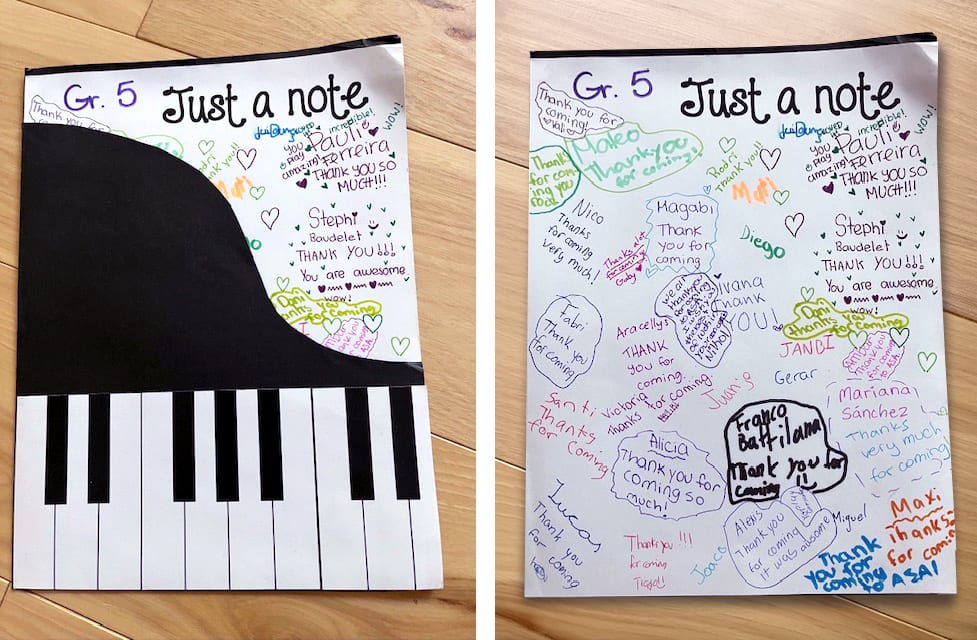 Gr. 5
Just a note
Thank you for
WOW!
incredible!
You
play
amazing!
Pauli
Ferreira
THANK YOU SO
MUCH!!!
Rodri
Thank you!!
Mati
Stephi
Baudelet
THANK YOU!!!
You are awesome
wow!
Dani
thanks you
for coming
Thank you
for coming
to ASA!
Gr. 5
Just a note
Thank you for
coming!
Mateo
Thank you
for coming!
Thank you
for com-
ing you
Rodri
Thank you!!
Mati
You
play
amazing!
incredible!
WOW!
Pauli
Ferreira
THANK YOU SO
MUCH!!!
Nico
Thanks
for coming
very much!
Kagabi
Thank
you for
coming
Diego
Stephi
Baudelet
THANK YOU!!!
You are awesome
wow!
Thanks
for coming
Gaby
Ivana
Thank
YOU!
Dani
thanks you
for coming
JANBI
Thank you
for coming
to ASA!
Fabri
Thank you
for coming
Aracellys
THANK
you for
coming.
Gerar
Juanjo
Victoria
thanks for coming
Mariana
Sánchez
Thanks
very much
for coming
Santi
Thanks
for coming
Franco
Battilana
Thank you for
coming
Alicia
Thank you for
coming so
much!
Lucas
Thank
you
for
coming
Thank you!!!
for coming
Joaco
Alexis
Thank you
for coming
it was awsome
Miguel
Thank
you for
coming
ASA!
Maxi
thanks
for coming